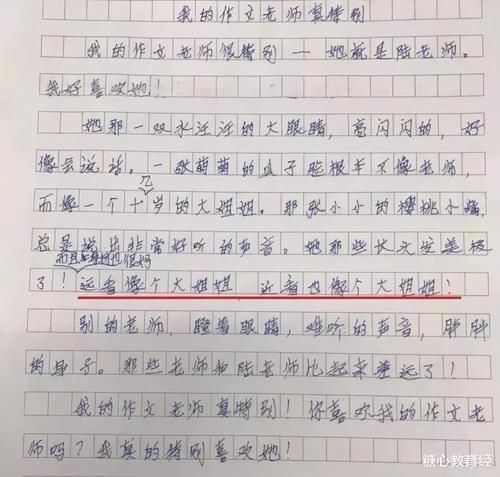 我的作文老师真特别
我的作文老师很特别——她就是陆老师。
我好喜欢她！
她那一双水汪汪的大眼睛，亮闪闪的，好
像会说话。一张萌萌的瓜子脸根本不像老师，
而像一个十几岁的大姐姐。那张小小的樱桃小嘴，
总是说出非常好听的声音。她那些长头发美极
了！而且身材也很好
远看像个大姐姐 近看也像个大姐姐！
别的老师，瞪着眼睛，难听的声音，胖胖
的身子。那些老师和陆老师比起来差远了！
我的作文老师真特别！你喜欢我的作文老
师吗？我真的特别喜欢她！
糖心教育经